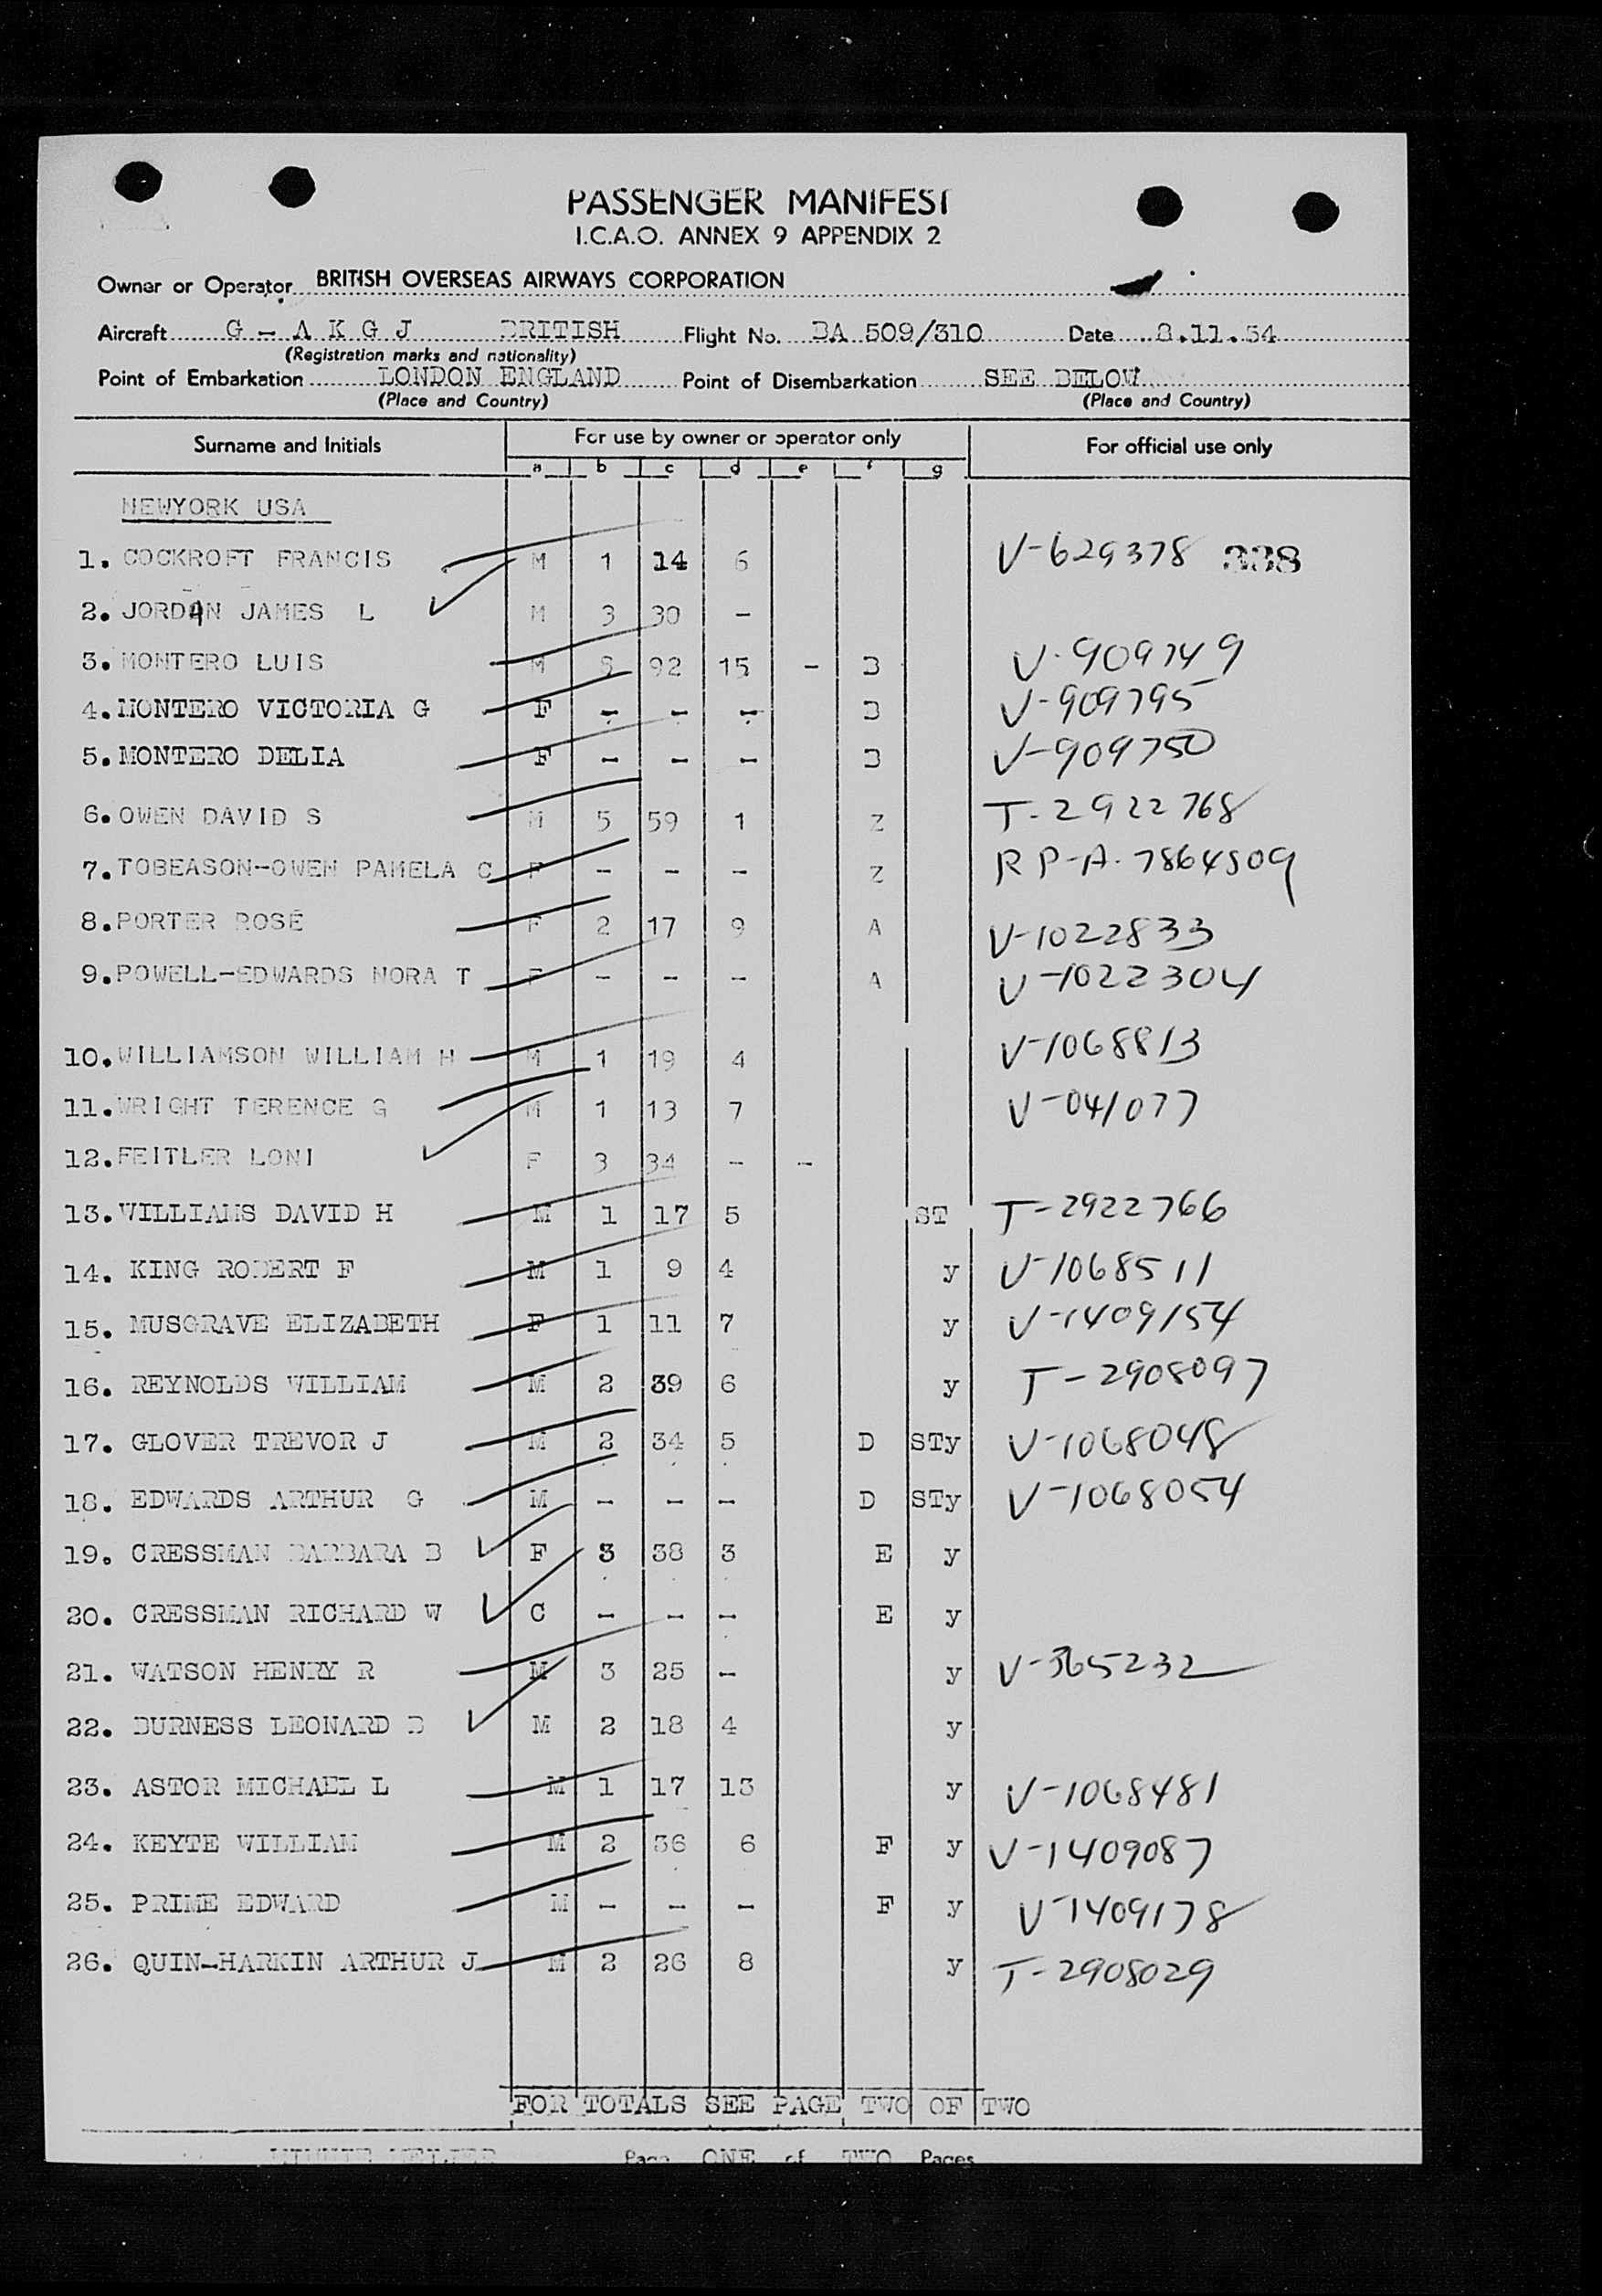 PASSENGER MANIFEST
I.C.A.O. ANNEX 9 APPENDIX 2
Owner or Operator BRITISH OVERSEAS AIRWAYS CORPORATION
Aircraft G - A K G J BRITISH Flight No. BA 509/310 Date 8.11.54
(Registration marks and nationality)
Point of Embarkation LONDON ENGLAND Point of Disembarkation SEE BELOW
(Place and Country) (Place and Country)
Surname and Initials For use by owner or operator only For official use only
a b c d e f g
NEWYORK USA
1. COCKROFT FRANCIS M 1 14 6 V-629378 338
2. JORDAN JAMES L M 3 30 -
3. MONTERO LUIS M 5 92 15 - B V-909749
4. MONTERO VICTORIA G F - - - B V-909795
5. MONTERO DELIA F - - - B V-909750
6. OWEN DAVID S M 5 59 1 Z T-2922768
7. TOBEASON-OWEN PAMELA C F - - - Z RP-A-7864509
8. PORTER ROSE F 2 17 9 A V-1022833
9. POWELL-EDWARDS NORA T F - - - A V-1022304
10. WILLIAMSON WILLIAM H M 1 19 4 V-1068813
11. WRIGHT TERENCE G M 1 13 7 V-041077
12. FEITLER LONI F 3 34 - -
13. WILLIAMS DAVID H M 1 17 5 ST T-2922766
14. KING ROBERT F M 1 9 4 y V-1068511
15. MUSGRAVE ELIZABETH F 1 11 7 y V-1409154
16. REYNOLDS WILLIAM M 2 39 6 y T-2908097
17. GLOVER TREVOR J M 2 34 5 D STy V-1068048
18. EDWARDS ARTHUR G M - - - D STy V-1068054
19. CRESSMAN BARBARA B F 3 38 3 E y
20. CRESSMAN RICHARD W C - - - E y
21. WATSON HENRY R M 3 25 - y V-365232
22. BURNESS LEONARD D M 2 18 4 y
23. ASTOR MICHAEL L M 1 17 13 y V-1068481
24. KEYTE WILLIAM M 2 36 6 F y V-1409087
25. PRIME EDWARD M - - - F y V-1409178
26. QUIN-HARKIN ARTHUR J M 2 26 8 y T-2908029
FOR TOTALS SEE PAGE TWO OF TWO
Page ONE of TWO Pages